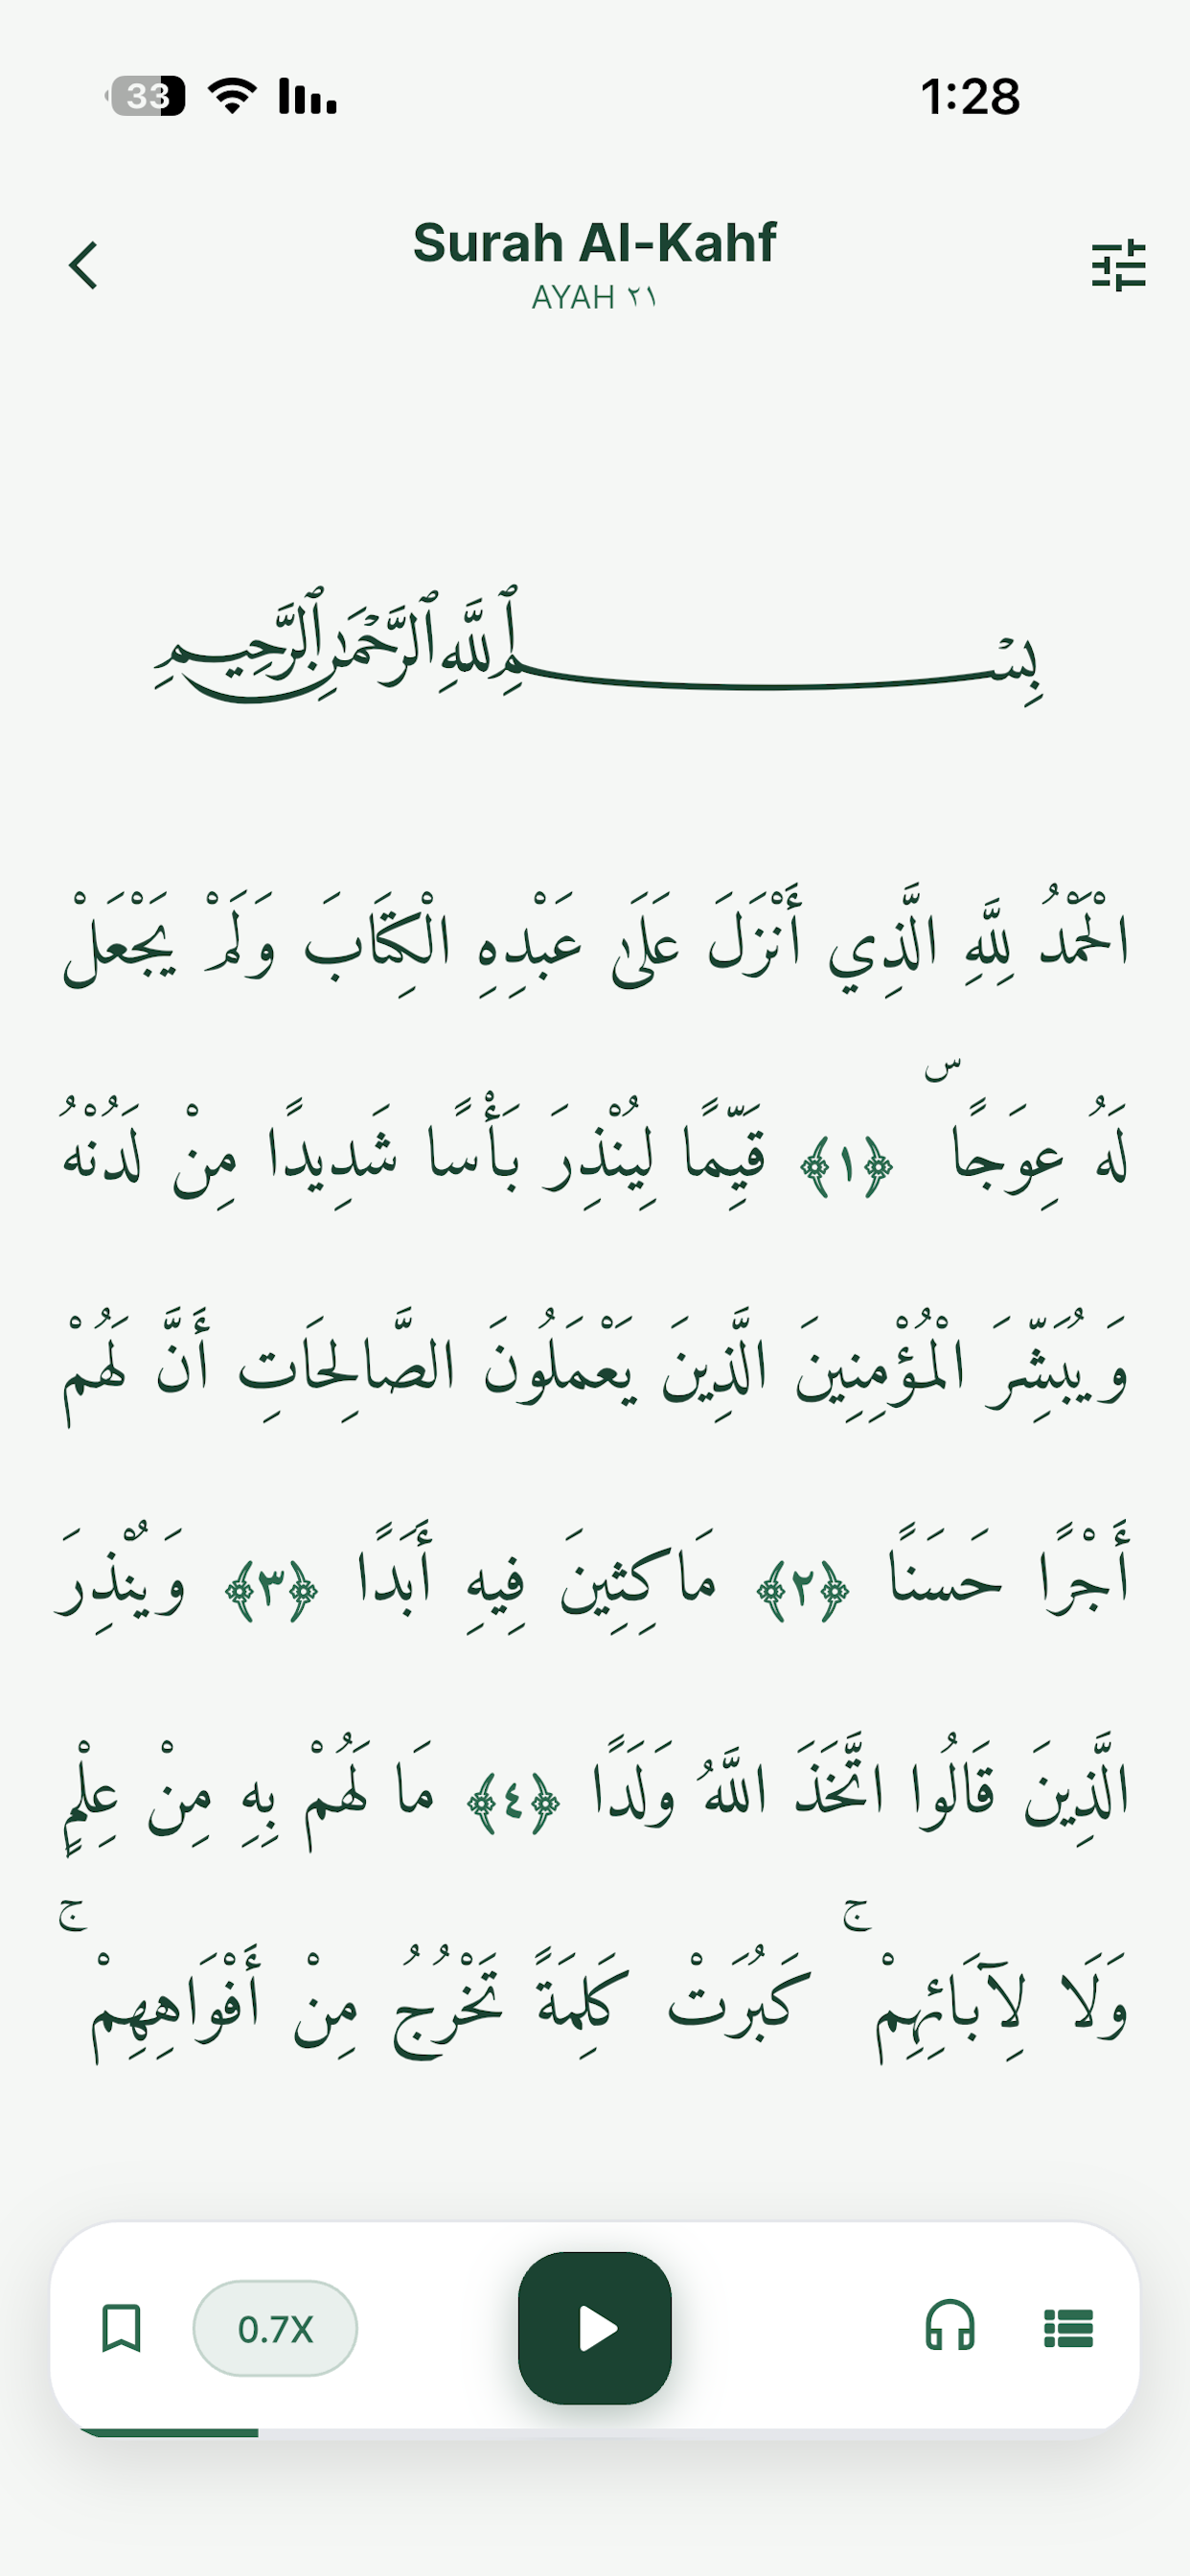 33
1:28
Surah Al-Kahf
AYAH ٢١
بِسْمِ ٱللَّهِ ٱلرَّحْمَٰنِ ٱلرَّحِيمِ
الْحَمْدُ لِلَّهِ الَّذِي أَنْزَلَ عَلَىٰ عَبْدِهِ الْكِتَابَ وَلَمْ يَجْعَلْ
لَهُ عِوَجًا ۜ ﴿١﴾ قَيِّمًا لِيُنْذِرَ بَأْسًا شَدِيدًا مِنْ لَدُنْهُ
وَيُبَشِّرَ الْمُؤْمِنِينَ الَّذِينَ يَعْمَلُونَ الصَّالِحَاتِ أَنَّ لَهُمْ
أَجْرًا حَسَنًا ﴿٢﴾ مَاكِثِينَ فِيهِ أَبَدًا ﴿٣﴾ وَيُنْذِرَ
الَّذِينَ قَالُوا اتَّخَذَ اللَّهُ وَلَدًا ﴿٤﴾ مَا لَهُمْ بِهِ مِنْ عِلْمٍ
وَلَا لِآبَائِهِمْ ۚ كَبُرَتْ كَلِمَةً تَخْرُجُ مِنْ أَفْوَاهِهِمْ ۚ
0.7X